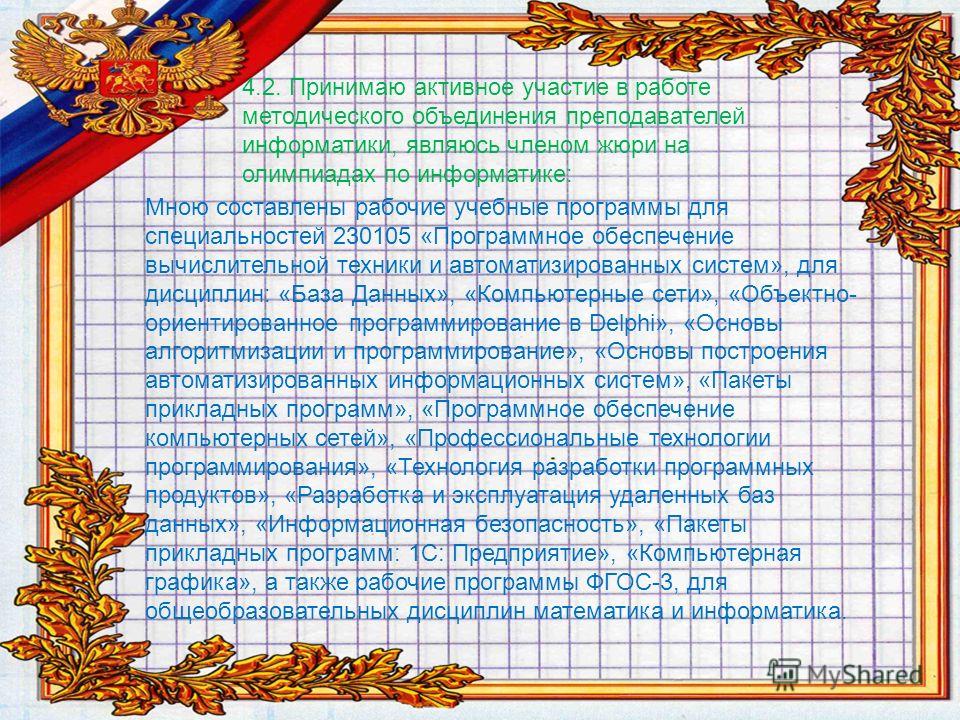 4.2. Принимаю активное участие в работе
методического объединения преподавателей
информатики, являюсь членом жюри на
олимпиадах по информатике:
Мною составлены рабочие учебные программы для
специальностей 230105 «Программное обеспечение
вычислительной техники и автоматизированных систем», для
дисциплин: «База Данных», «Компьютерные сети», «Объектно-
ориентированное программирование в Delphi», «Основы
алгоритмизации и программирование», «Основы построения
автоматизированных информационных систем», «Пакеты
прикладных программ», «Программное обеспечение
компьютерных сетей», «Профессиональные технологии
программирования», «Технология разработки программных
продуктов», «Разработка и эксплуатация удаленных баз
данных», «Информационная безопасность», «Пакеты
прикладных программ: 1С: Предприятие», «Компьютерная
графика», а также рабочие программы ФГОС-3, для
общеобразовательных дисциплин математика и информатика.
MyShared